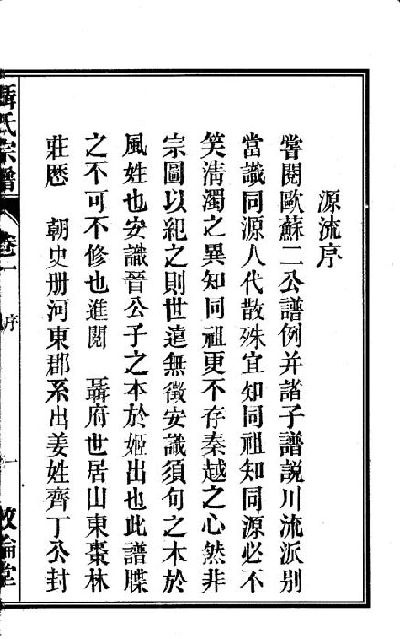 源流序
嘗閱歐蘇二公譜例并諸子譜說川流派別
當識同源人代散殊宜知同祖知同源必不
笑淸濁之異知同祖更不存秦越之心然非
宗圖以紀之則世遠無徵安識須句之本於
風姓也安識晉公子之本於姬出也此譜牒
之不可不修也進閱　聶府世居山東棗林
莊歴　朝史册河東郡系出姜姓齊丁公封
聶氏宗譜　卷一　序　一　敦倫堂